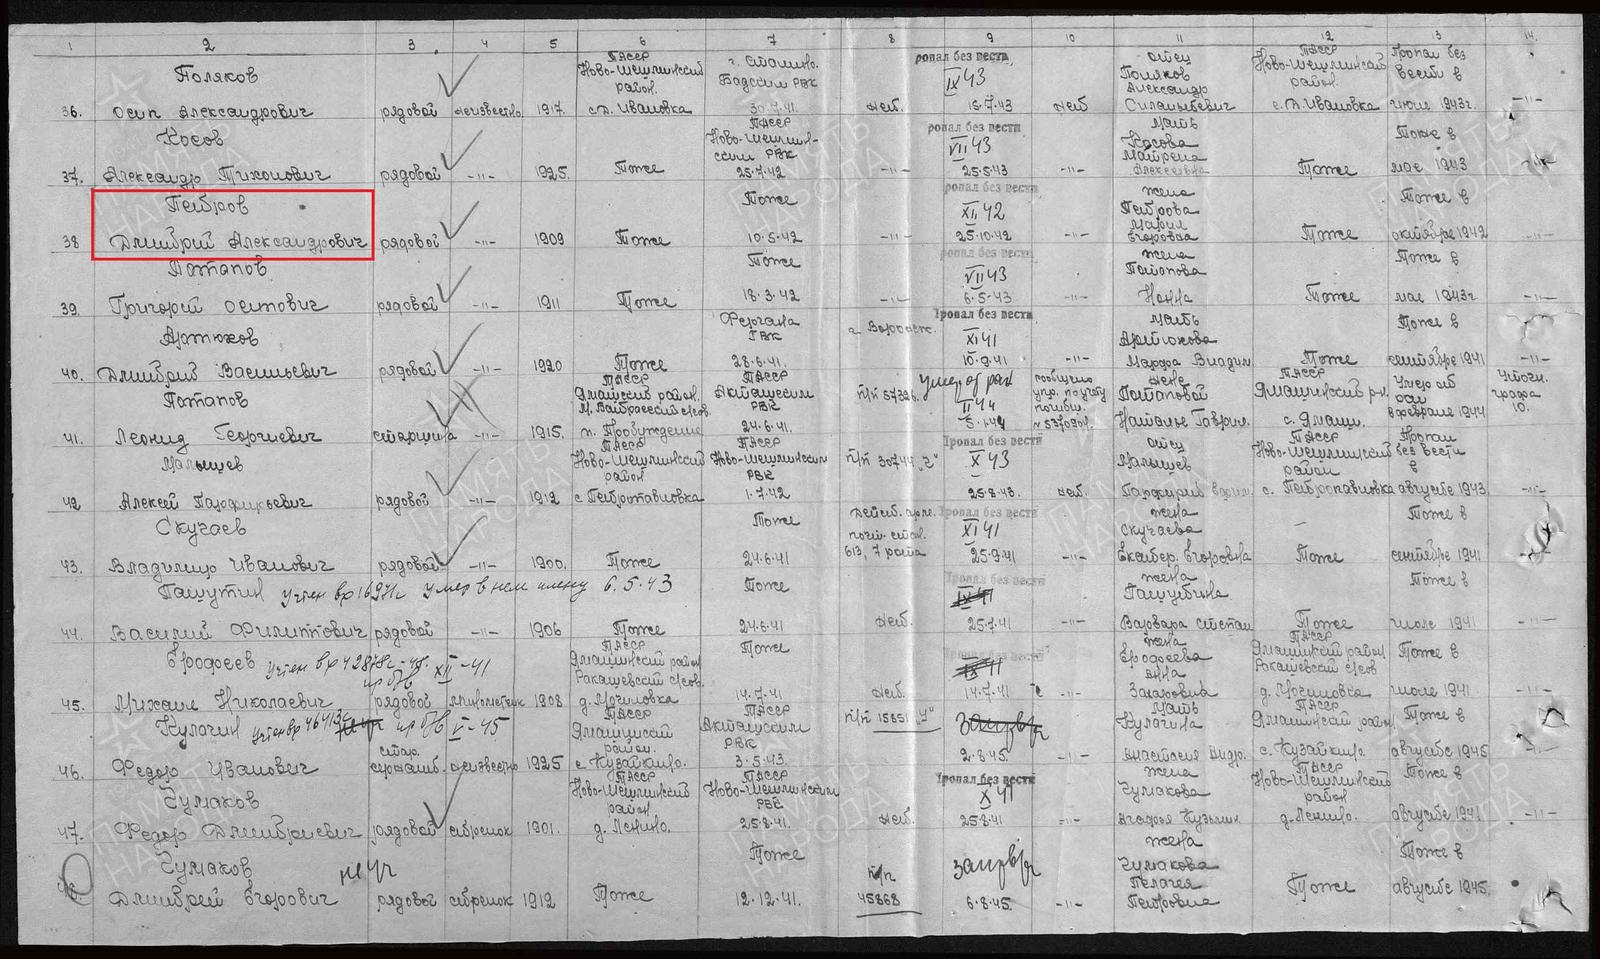 1 2 3 4 5 6 7 8 9 10 11 12 13 14.
36. Поляков Осип Александрович рядовой неизвестно 1917. ТАССР Ново-Шешминский район. с. Д. Ивановка г. Сталино. РВК 30.7.41. неб. ропал без вести IX 43 15.7.43 неб отец Поляков Александр с. Д. Ивановка ТАССР Ново-Шешминский район. Пропал без вести в июле 1943г. -"-
37. Косов Александр Тихонович рядовой -"- 1925. Тоже ТАССР Ново-Шешминским РВК 25.7.42 -"- ропал без вести VII 43 25.5.43 -"- мать Косова Матрена Алексеевна Тоже Тоже в мае 1943
38 Петров Дмитрий Александрович рядовой -"- 1909 Тоже Тоже 10.5.42 -"- ропал без вести XII 42 25.10.42 -"- жена Петрова Мария Егоровна Тоже Тоже в октябре 1942 -"-
39. Потапов Григорий Осипович рядовой -"- 1911 Тоже Тоже 18.3.42 -"- ропал без вести VII 43 6.5.43 -"- жена Потапова Нонна Тоже Тоже в мае 1943г -"-
40. Артюхов Дмитрий Васильевич рядовой -"- 1920 Тоже Фергана ГВК 28.6.41. Пропал без вести XI 41 10.9.41 -"- мать Артюхова Марфа Владим. Тоже Тоже в сентябре 1941 -"-
41. Потапов Леонид Георгиевич старшина -"- 1915. ТАССР Ямашский район п. Пробуждение ТАССР Акташским РВК 24.6.41. п/п 57326. Умер от ран II 44 5.1.44 сообщено упр. по учету погибш. жене Потаповой Наталье Гаврил. ТАССР Ямашинский р-н. с. Ямаши. Умер от ран в феврале 1944 Уточн. графа 10.
42 Малышев Алексей Парфирьевич рядовой -"- 1912 ТАССР Ново-Шешминский район с. Петропавловка ТАССР Ново-Шешминским РВК 1.7.42 п/п 30744 Пропал без вести X 43 25.8.43. неб. отец Малышев ТАССР Ново-Шешминский район с. Петропавловка Пропал без вести в августе 1943. -"-
43. Скучаев Владимир Иванович рядовой -"- 1900. Тоже Тоже 24.6.41 613, 7 рота Пропал без вести XI 41 25.9.41 -"- жена Скучаева Екатер. Егоровна Тоже Тоже в сентябре 1941 -"-
44. Пашутин Василий Филиппович учтен вр 16971г умер в нем плену 6.5.43 рядовой -"- 1906 Тоже Тоже 24.6.41 неб. Пропал без вести IX 41 25.7.41 -"- жена Пашутина Варвара Степан Тоже Тоже в июле 1941 -"-
45. Ерофеев Михаил Николаевич XII-41 рядовой минометчик 1908 ТАССР Ямашинский район д. Мочиловка Тоже 14.7.41 неб. Пропал без вести IX 41 14.7.41 -"- жена Ерофеева Анна Захаровна ТАССР Ямашинский район д. Мочиловка Тоже в июле 1941 -"-
46. Кулагин Федор Иванович V-45 стар. сержант. неизвестно 1925 ТАССР Ямашинский район. с. Кузайкино. ТАССР Акташским РВК 3.5.43. п/п 15651 2.8.45. -"- мать Кулагина Анастасия Андр. ТАССР Ямашинский район с. Кузайкино. Тоже в августе 1945
47. Чумаков Федор Дмитриевич рядовой стрелок 1901. ТАССР Ново-Шешминский район д. Ленино. ТАССР Ново-Шешминским РВК 25.8.41. неб. Пропал без вести X 41 25.8.41 -"- жена Чумакова Агафья Кузьмин. ТАССР Ново-Шешминский район д. Ленино. Тоже в августе 1941 -"-
Чумаков Дмитрий Егорович не уч рядовой стрелок 1912 Тоже Тоже 12.12.41. п/п 45868 6.8.45. -"- жена Чумакова Пелагея Петровна Тоже Тоже в августе 1945.
ПАМЯТЬ НАРОДА